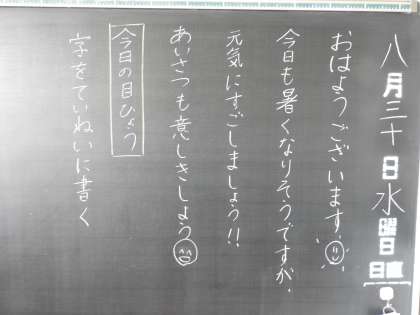 八月三十日水曜日
日直
おはようございます。
今日も暑くなりそうですが、
元気にすごしましょう!!
あいさつも意しきしよう
今日の目ひょう
字をていねいに書く